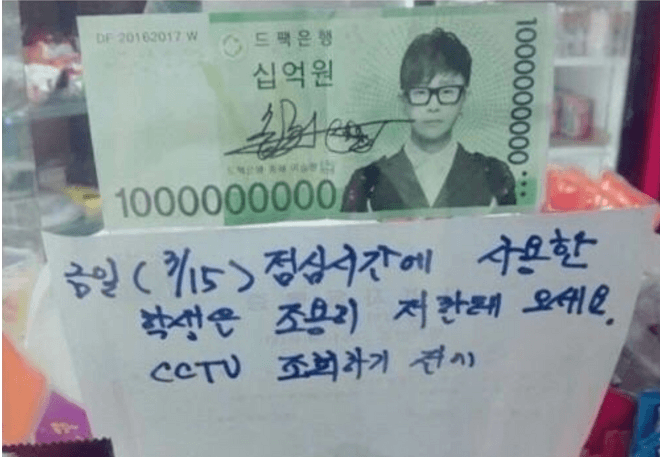 DF 20162017 W
드팩은행
십억원
1000000000
1000000000...
금일(3/15) 점심시간에 사용한
학생은 조용히 저한테 오세요.
CCTV 조회하기 전에